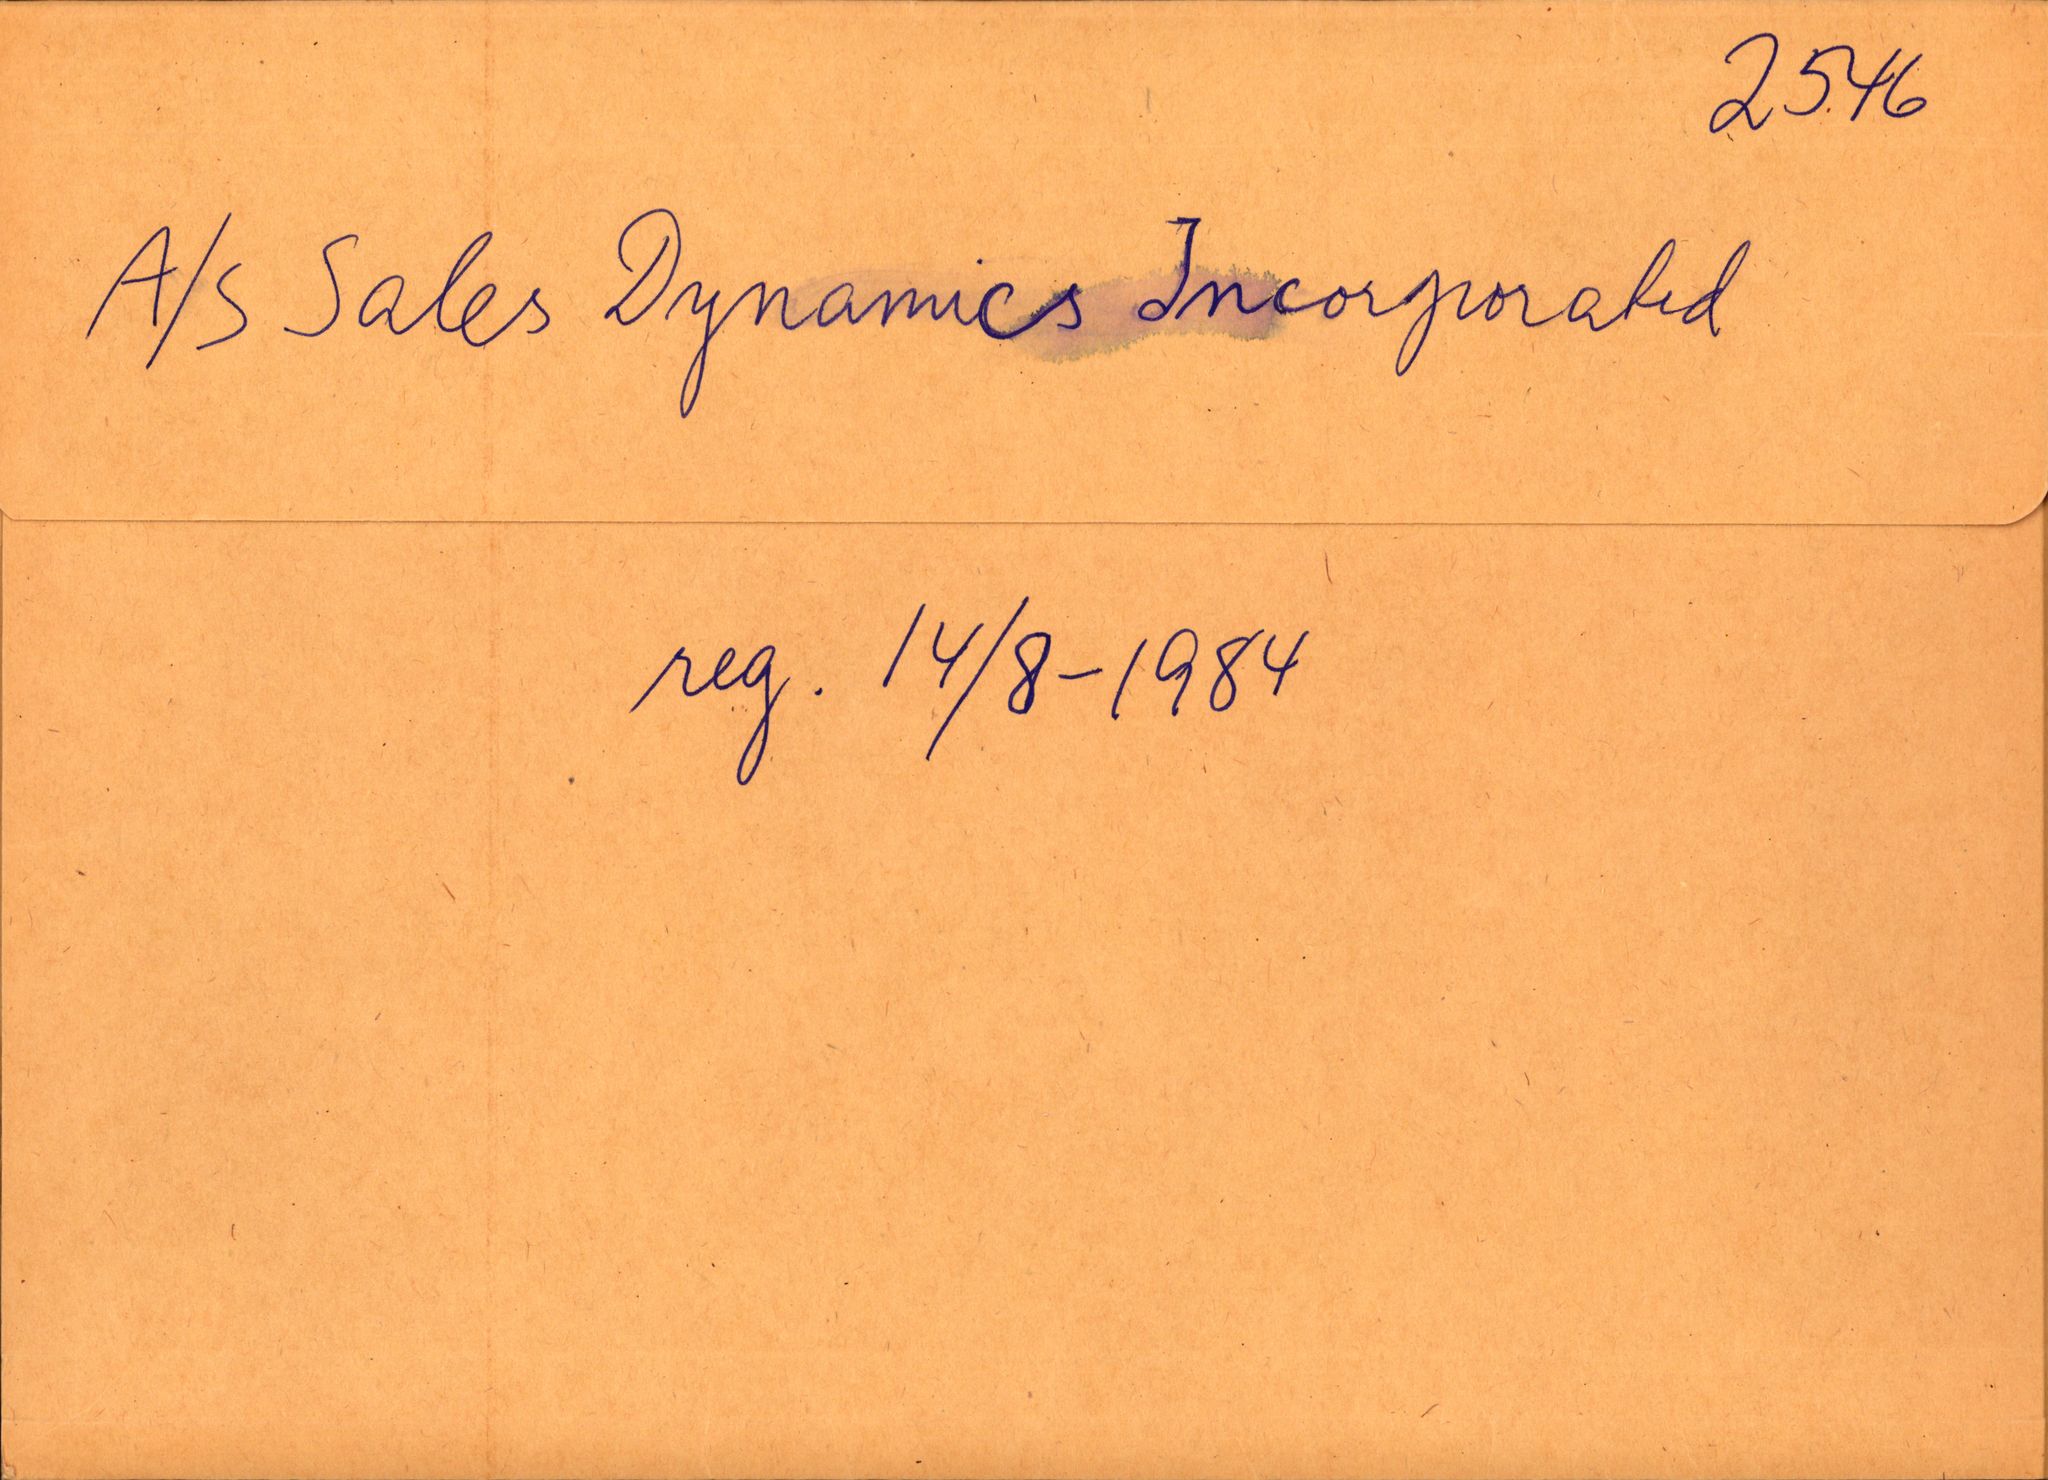 2546
A/S Sales Dynamics Incorporated
reg. 14/8-1984